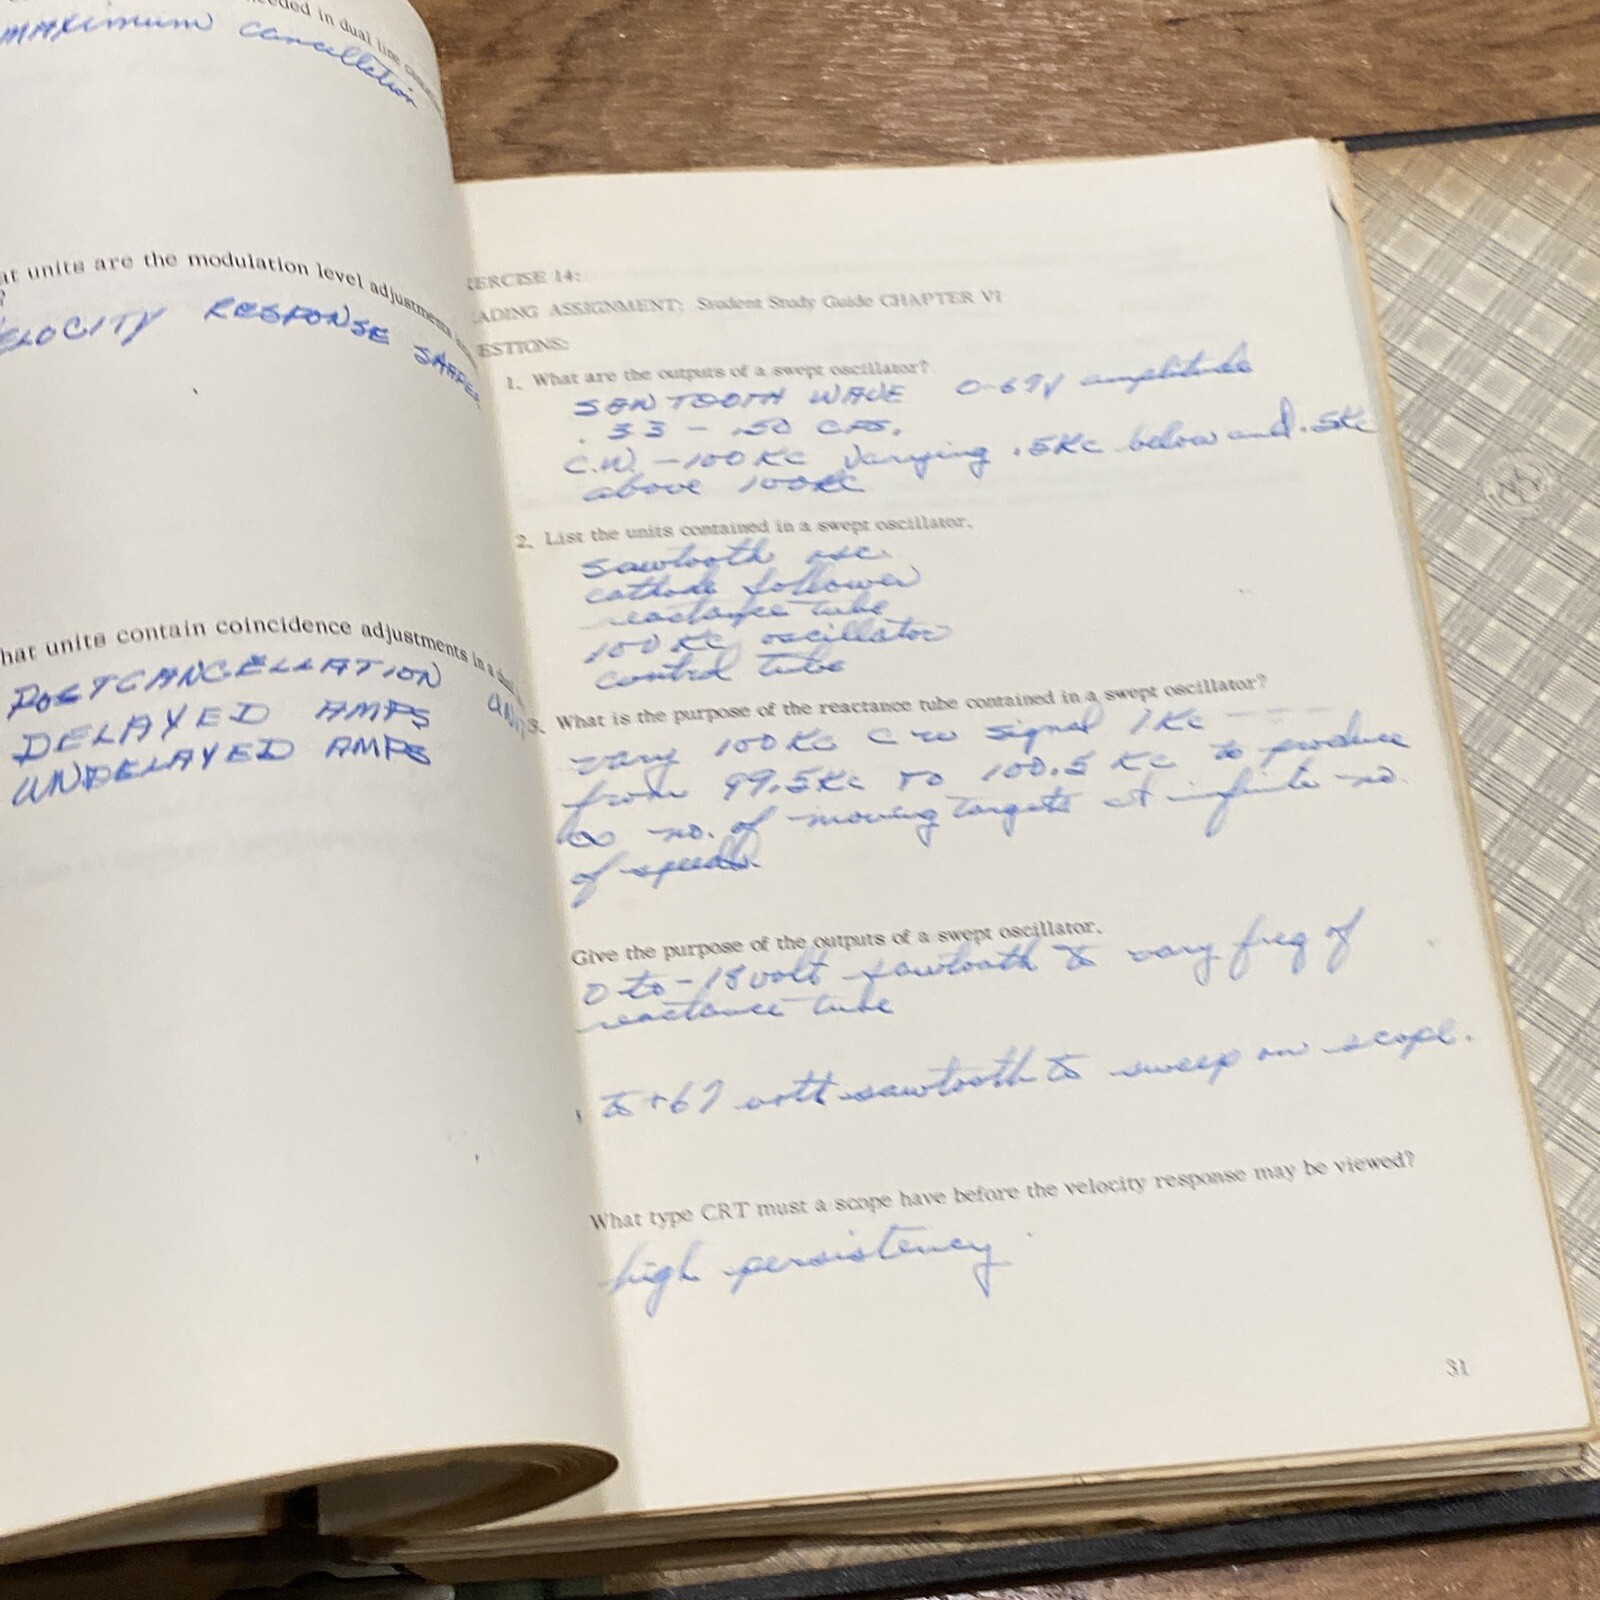 eeded in dual line
maximum cancellation
at units are the modulation level adjustments
?
ELOCITY RESPONSE SHAPER
hat units contain coincidence adjustments in a dual
POSTCANCELLATION
DELAYED AMPS
UNDELAYED AMPS
ERCISE 14:
ADING ASSIGNMENT: Student Study Guide CHAPTER VI
ESTIONS:
1. What are the outputs of a swept oscillator?
SAW TOOTH WAVE 0-67V amplitude
.33 - .50 CPS.
C.W. - 100 KC varying .5Kc below and .5Kc
above 100KC
2. List the units contained in a swept oscillator.
Sawtooth osc.
cathode follower
reactance tube
100 KC oscillator
control tube
3. What is the purpose of the reactance tube contained in a swept oscillator?
vary 100 KC C W signal 1 Kc
from 99.5Kc TO 100.5 Kc to produce
∞ no. of moving targets at infinite no.
of speeds.
Give the purpose of the outputs of a swept oscillator.
0 to -18 volt sawtooth to vary freq of
reactance tube
to +67 volt sawtooth to sweep on scope.
What type CRT must a scope have before the velocity response may be viewed?
high persistency
31